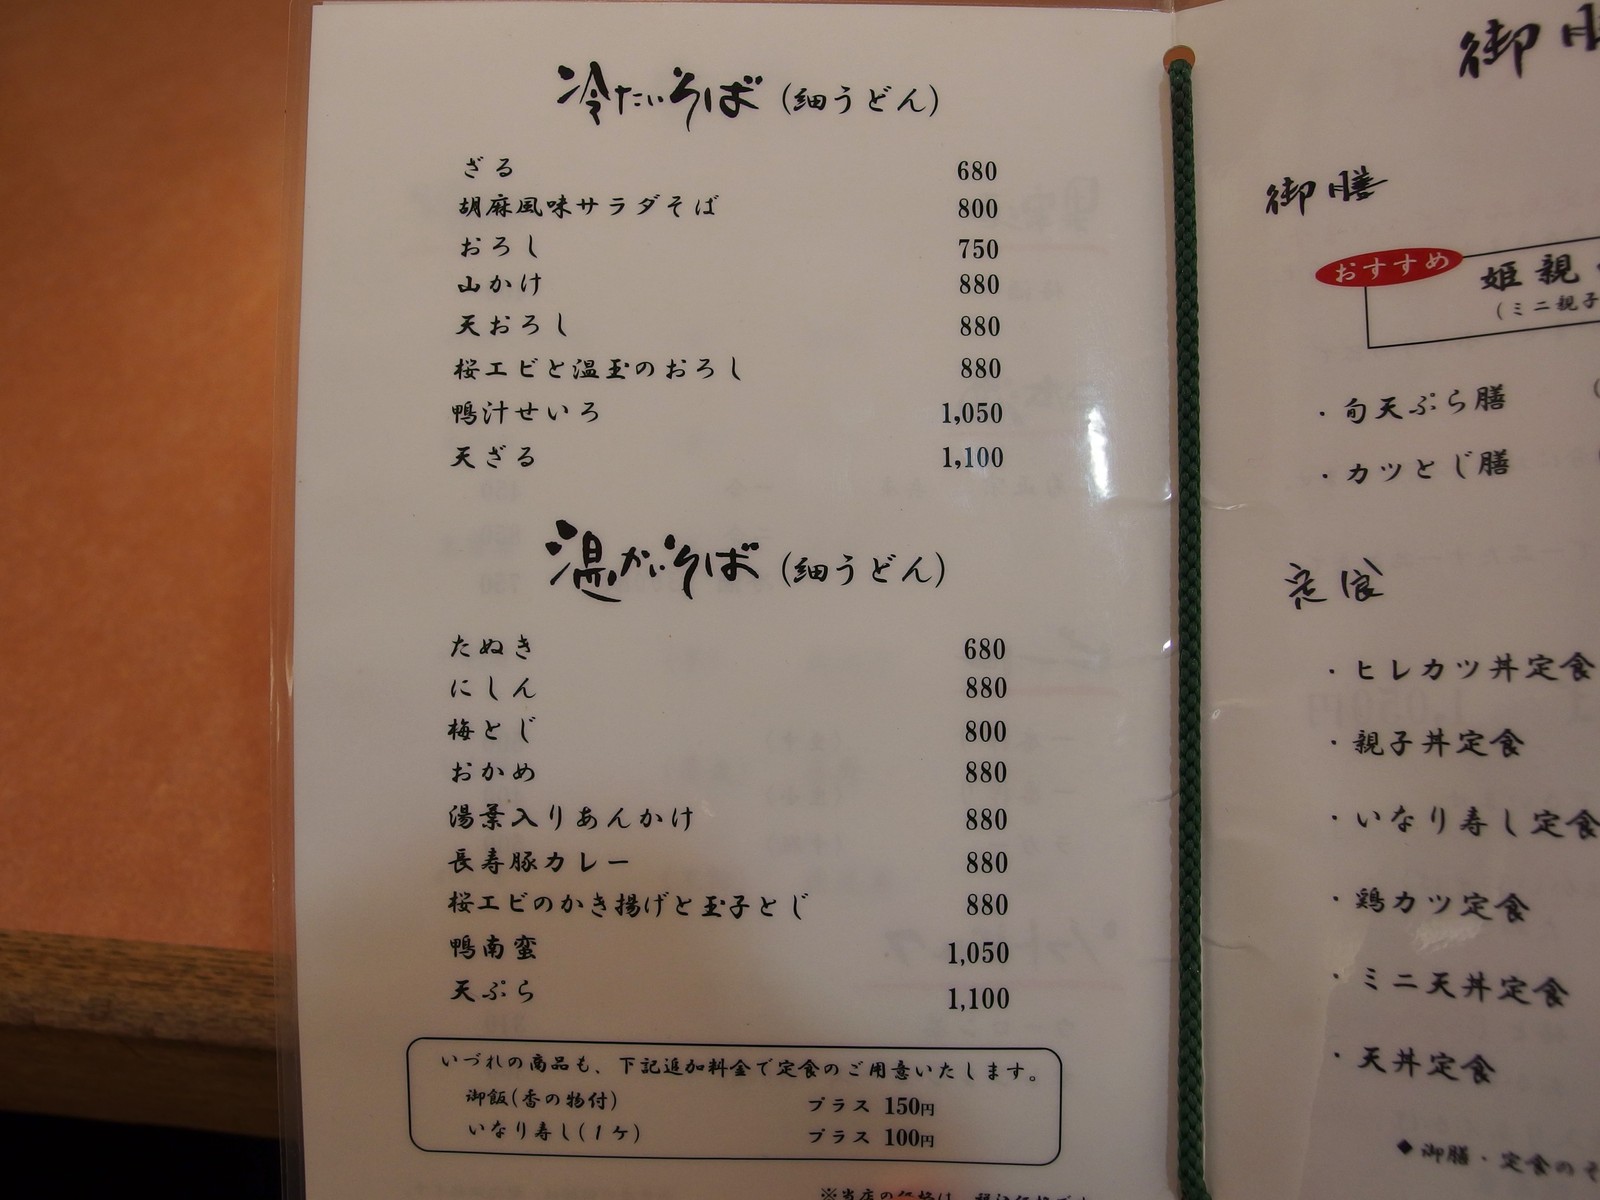 冷たいそば (細うどん)
ざる 680
胡麻風味サラダそば 800
おろし 750
山かけ 880
天おろし 880
桜エビと温玉のおろし 880
鴨汁せいろ 1,050
天ざる 1,100
温かいそば (細うどん)
たぬき 680
にしん 880
梅とじ 800
おかめ 880
湯葉入りあんかけ 880
長寿豚カレー 880
桜エビのかき揚げと玉子とじ 880
鴨南蛮 1,050
天ぷら 1,100
いづれの商品も、下記追加料金で定食のご用意いたします。
御飯(香の物付) プラス 150円
いなり寿し(1ケ) プラス 100円
※当店の価格は
御
御膳
おすすめ
姫親
(ミニ親子
・旬天ぷら膳
・カツとじ膳
定食
・ヒレカツ丼定食
・親子丼定食
・いなり寿し定食
・鶏カツ定食
・ミニ天丼定食
・天丼定食
◆御膳・定食のそ